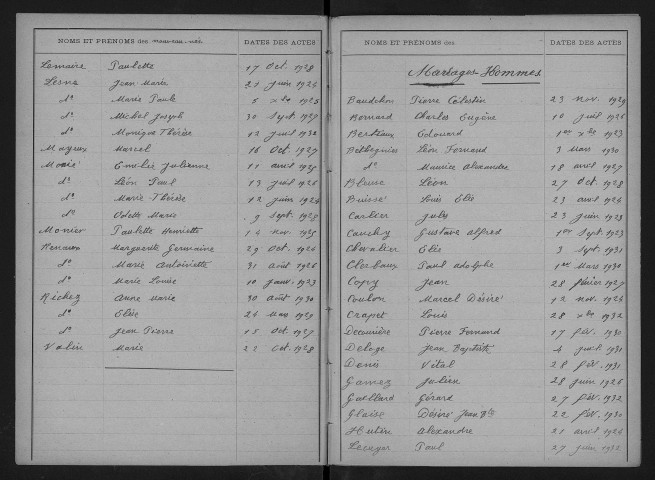 NOMS ET PRÉNOMS des nouveau-nés DATES DES ACTES
Lemaire Paulette 17 Oct. 1928
Lesne Jean Marie 21 juin 1924
d° Marie Paule 5 xbre 1925
d° Michel Joseph 30 Sept. 1927
d° Monique Thérèse 12 juil 1932
Marcel 16 Oct. 1927
Emilie Julienne 11 avril 1925
d° Léon Paul 13 juil 1926
d° Marie Thérèse 12 juin 1924
d° Odette Marie 9 Sept. 1928
Monier Paulette Henriette 14 nov. 1925
Marguerite Germaine 29 Oct. 1924
d° Marie Antoinette 31 août 1926
d° Marie Louise 10 janv. 1923
Richez Anne Marie 30 août 1930
d° Elise 24 Mars 1929
d° Jean Pierre 15 Oct. 1927
Valin Marie 22 Oct. 1928
NOMS ET PRÉNOMS des DATES DES ACTES
Mariages Hommes
Baudchon Pierre Célestin 23 nov. 1929
Bernard Charles Eugène 10 juil 1926
Berteaux Edouard 1er xbre 1923
Léon Fernand 3 Mars 1930
d° Maurice Alexandre 18 avril 1927
Bleuse Léon 27 Oct. 1928
Buisse Louis Elie 23 avril 1924
Carlier Jules 23 juin 1923
Cauchy Gustave Alfred 1er Sept. 1923
Chevalier Elie 3 Sept. 1931
Paul Adolphe 1er Mars 1930
Jean 28 février 1927
Coulon Marcel Désiré 12 nov. 1924
Crapet Louis 28 xbre 1932
Pierre Fernand 17 fév. 1930
Deloge Jean Baptiste 4 juil 1931
Denis Vital 28 fév. 1931
Gamez Julien 28 juin 1926
Gaillard Gérard 27 fév. 1932
Glaise Désiré Jean Bte 22 fév. 1930
Hutin Alexandre 21 avril 1924
Lecuyer Paul 27 juin 1932